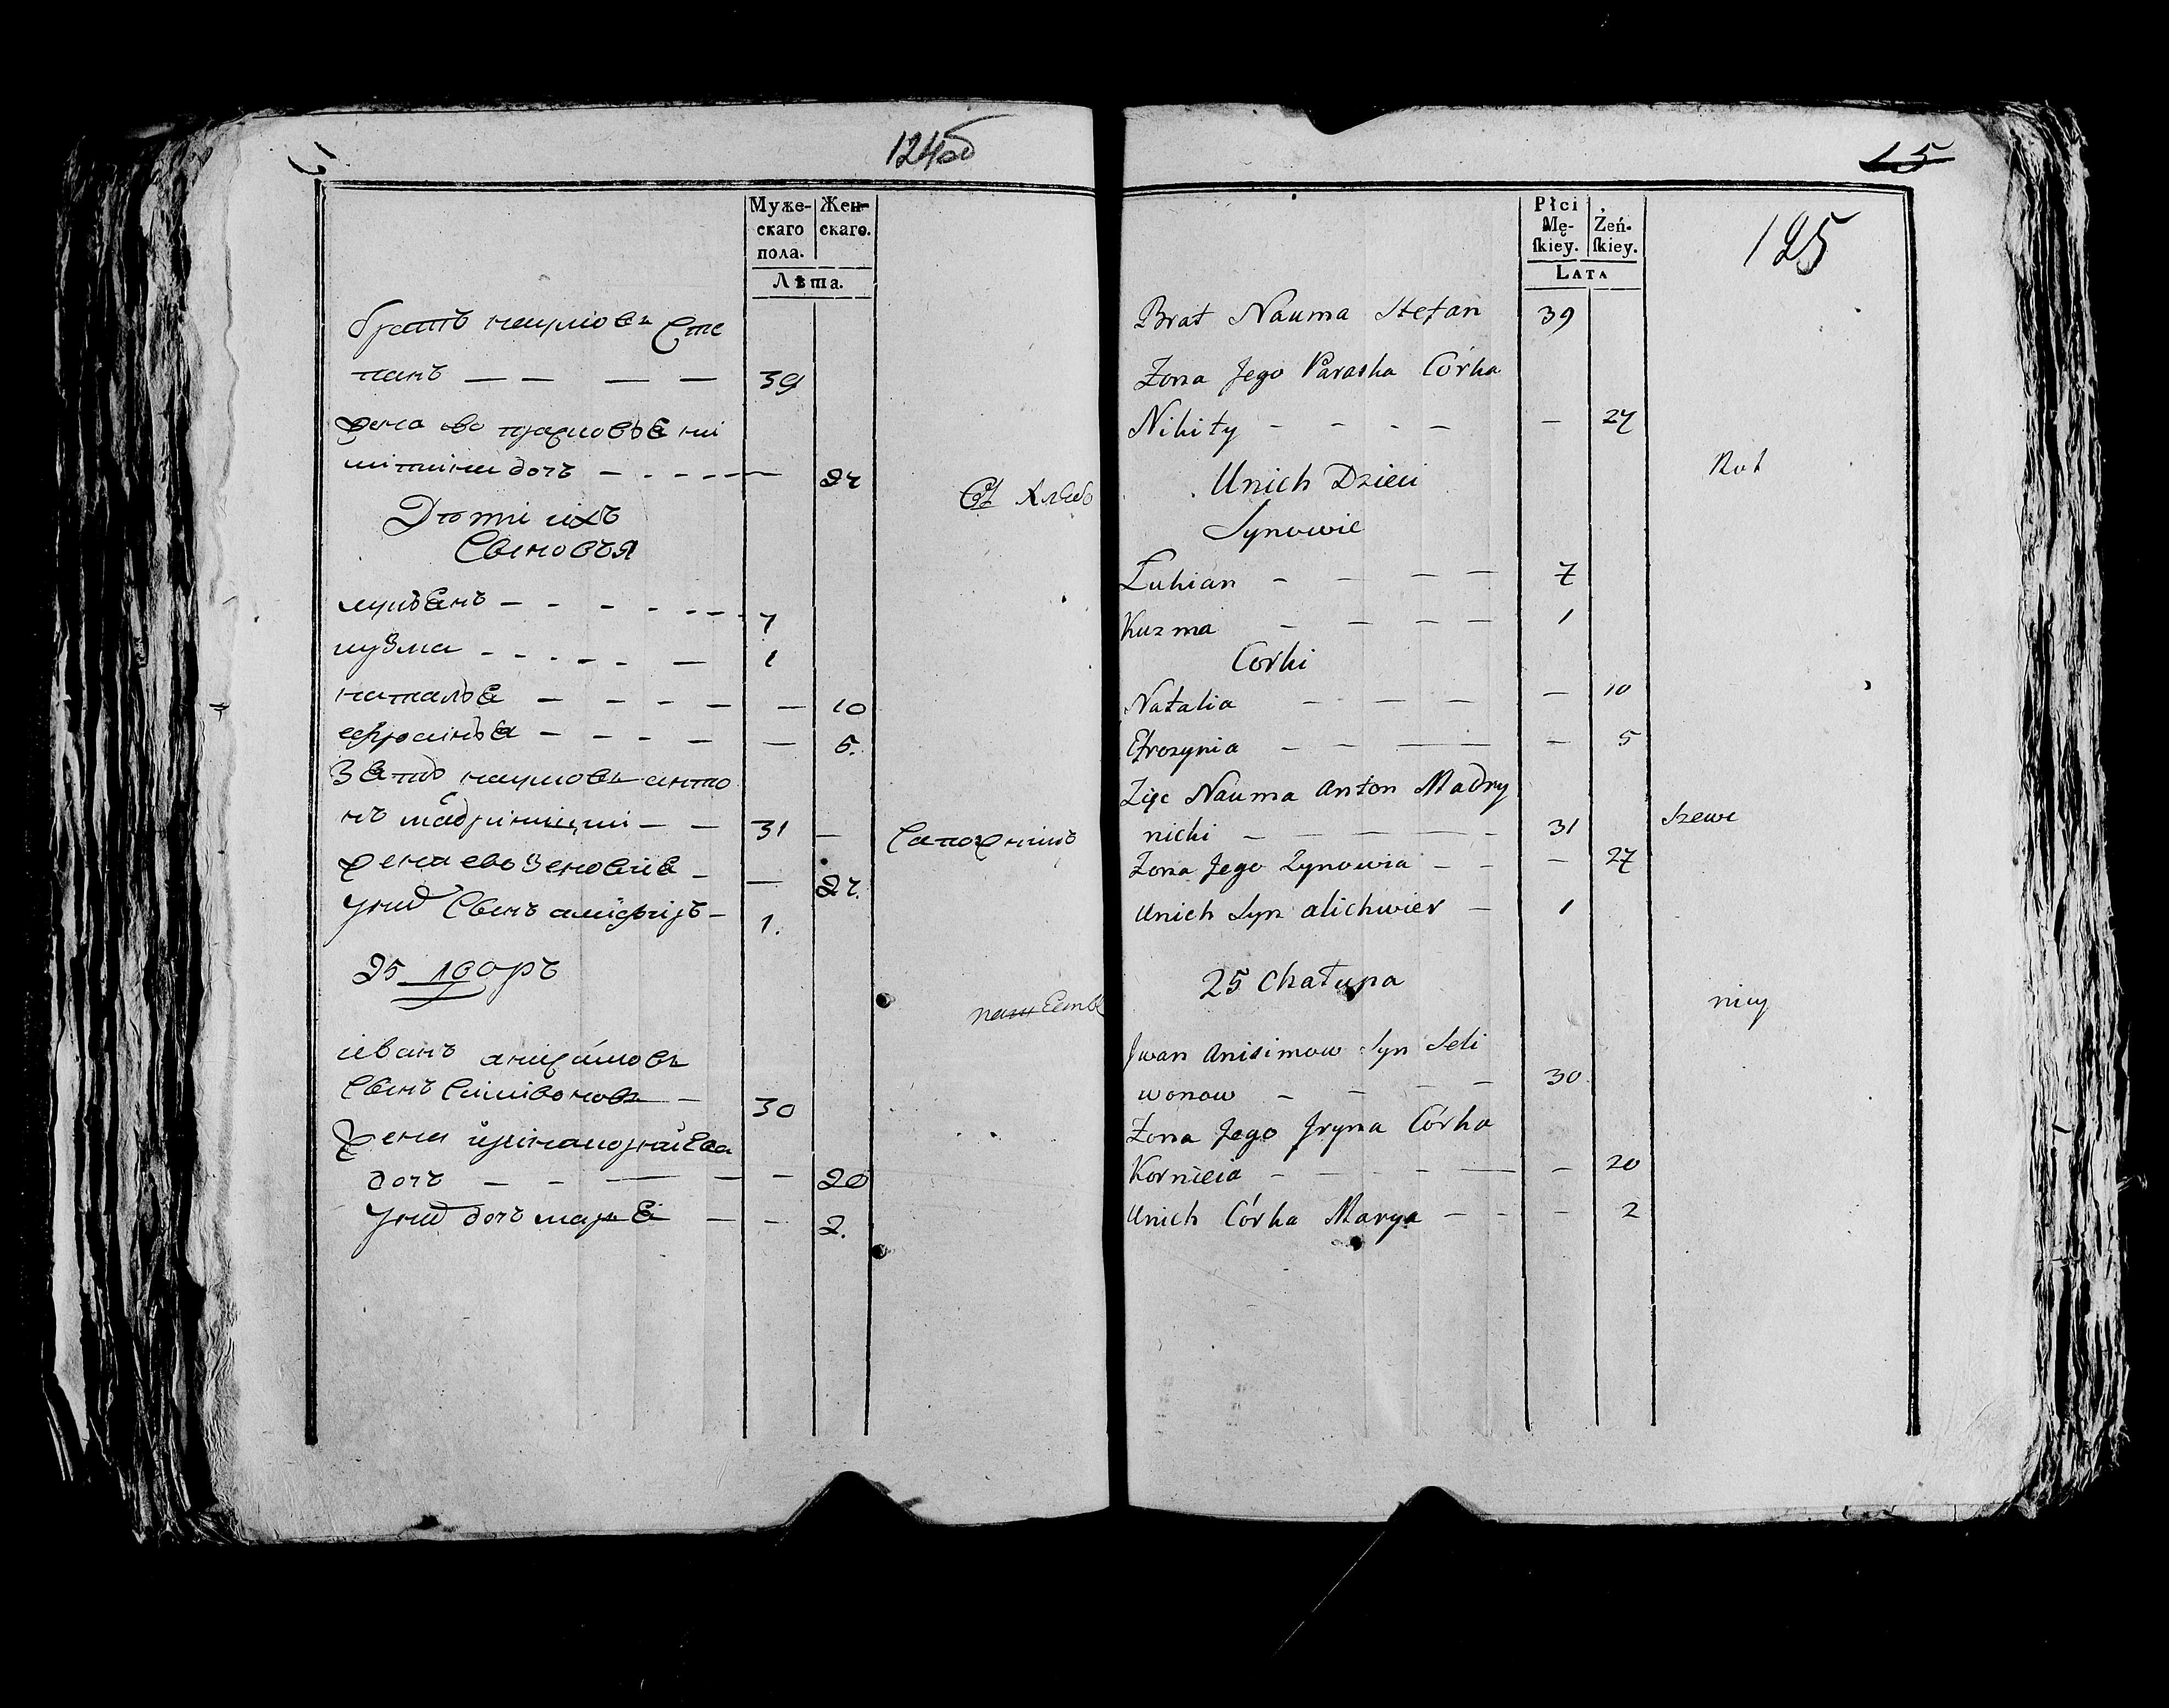 124об
Муже-
скаго
пола.
Жен-
скаго.
Лѣта.
братъ наумовъ Сте
панъ — — — — 39
жена ево
дочь — - - - — 27
Дѣти ихъ
Сыновья
лукьянъ — - - - - - 7
кузма - - - - - — 1
наталья — - - - — — 10
ефросинья — - - - — — 5.
Зять наумовъ анто
нъ — — 31 —
Сапожникъ
жена ево Зеновия - — 27.
Унихъ Сынъ — 1.
25 дворъ
иванъ анисимовъ
Сынъ Силивоновъ — 30
жена
дочь — - — — - 20
Унихъ дочь марья — - 2.
15
125
Płci
Mę-
skiey.
Żeń-
skiey.
LATA
Brat Nauma Stefan 39
Zona Jego Paraska Córka
Nikity - - - - — 27
Unich Dzieci
Synowie
Łukian - - — — 7
Kuzma - — — — 1
Corki
Natalia - — — — 10
Efrozynia - - — — - 5
Zięc Nauma Anton Madry
nicki — — — — - 31
Szewc
Zona Jego Zynowia - - — 27
Unich Syn alichwier — 1
25 Chałupa
Jwan Anisimow Syn Seli
wonow - - - — 30
Zona Jego Jryna Córka
Kornieia - - - - — — 20
Unich Córka Marya - - - 2